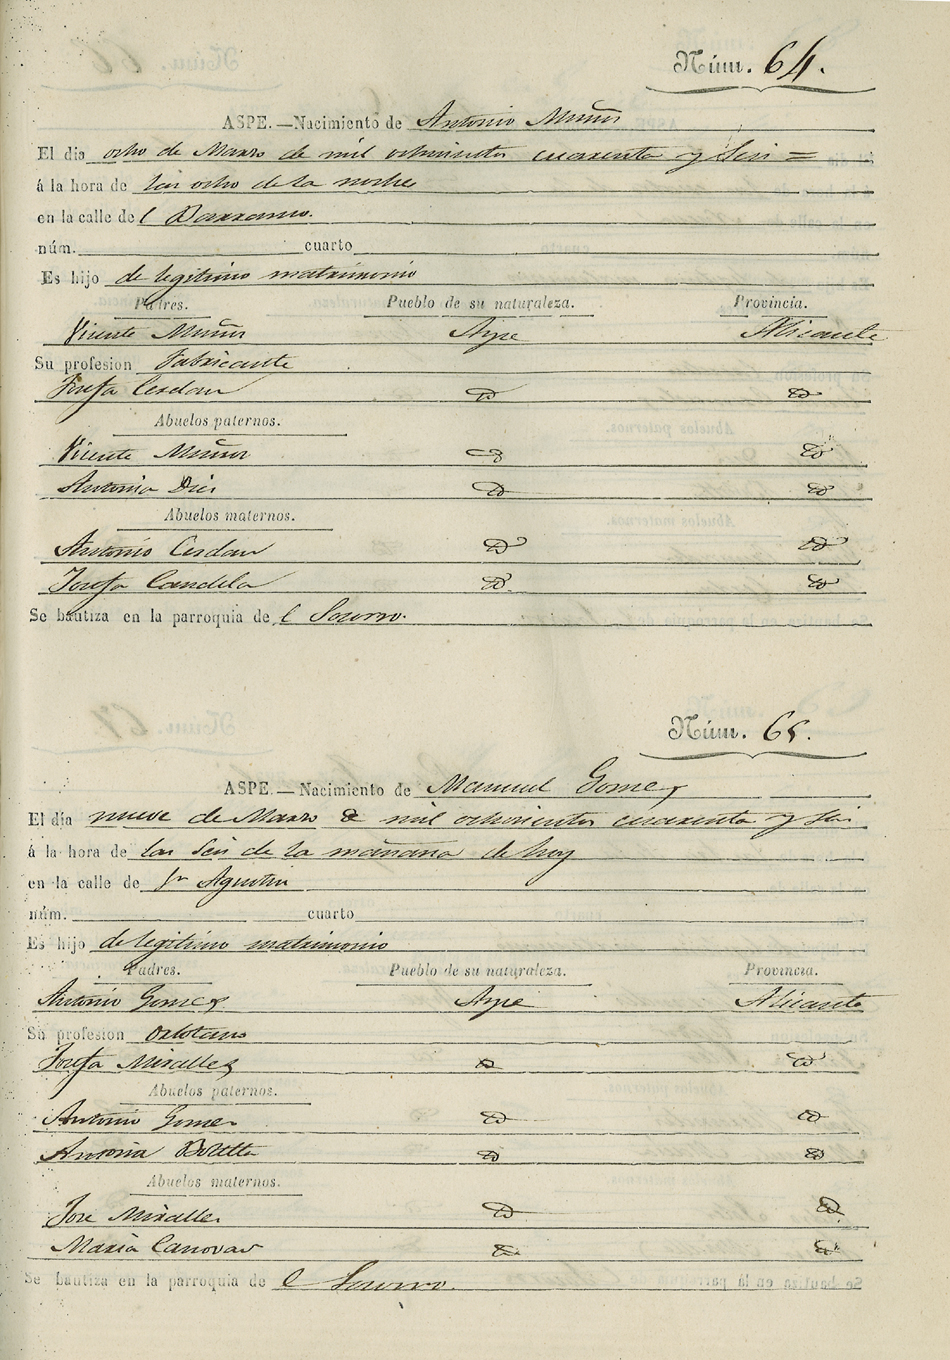 Núm. 64.
ASPE.—Nacimiento de Antonio Muñoz
El dia ocho de Marzo de mil ochocientos cuarenta y Seis =
á la hora de las ocho de la noche
en la calle de l Barranco.
núm. cuarto
Es hijo de legitimo matrimonio
Padres. Pueblo de su naturaleza. Provincia.
Vicente Muñoz Aspe Alicante
Su profesion Fabricante
Josefa Cerdan
Abuelos paternos.
Vicente Muñoz
Antonia
Abuelos maternos.
Antonio Cerdan
Josefa Candela
Se bautiza en la parroquia de l Socorro.
Núm. 65.
ASPE.—Nacimiento de Manuel Gomez
El día nueve de Marzo de mil ochocientos cuarenta y seis
á la hora de las seis de la mañana de hoy
en la calle de Sn Agustin
núm. cuarto
Es hijo de legitimo matrimonio
Padres. Pueblo de su naturaleza. Provincia.
Antonio Gomez Aspe Alicante
Su profesion
Josefa Miralles
Abuelos paternos.
Antonio Gomez
Antonia Botella
Abuelos maternos.
Jose Miralles
Maria Canovas
Se bautiza en la parroquia de l Socorro.